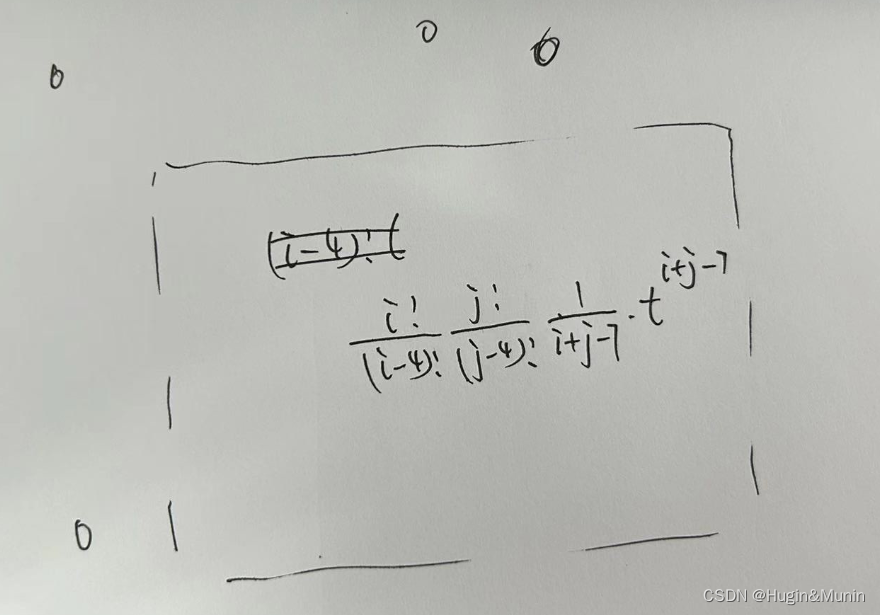 0
0 0
i! / (i-4)! j! / (j-4)! 1 / i+j-7 · t^{i+j-7}
0
CSDN @Hugin&Munin